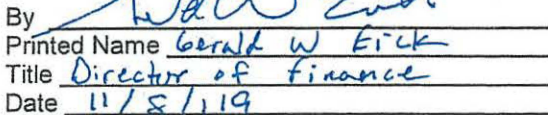 By
Printed Name Gerald W Eick
Title Director of finance
Date 11/8/119